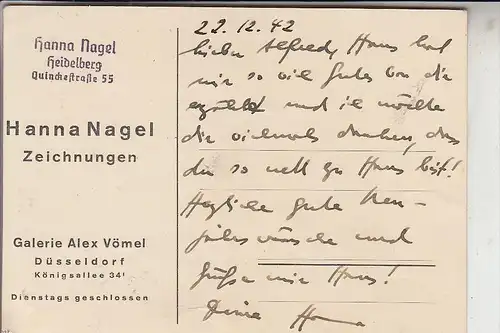 Hanna Nagel
Heidelberg
Quinckestraße 55
Hanna Nagel
Zeichnungen
Galerie Alex Vömel
Düsseldorf
Königsallee 34¹
Dienstags geschlossen
22.12.42
Lieber Alfred, Hans hat
mir so viel Gutes von dir
erzählt und ich möchte
dir vielmals danken, dass
du so nett zu Hans bist!
Herzliche gute Neu-
jahrswünsche und
grüße mir Hans!
Deine Hanna